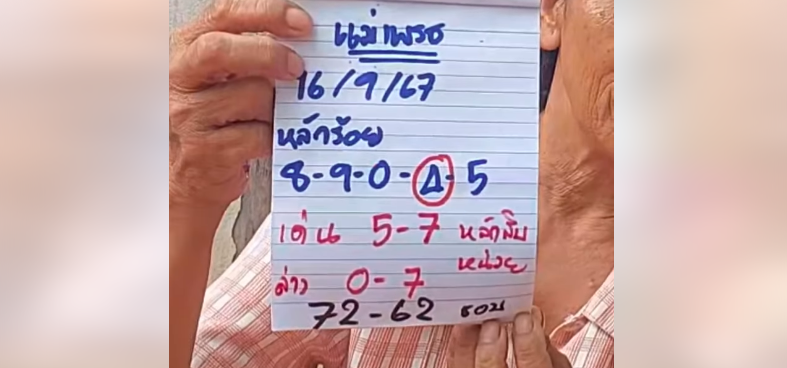 แม่เพรช
16/9/67
หลักร้อย
8-9-0-4-5
เด่น 5-7 หลักสิบ
หน่วย
ล่าง 0-7
72-62 รอบ